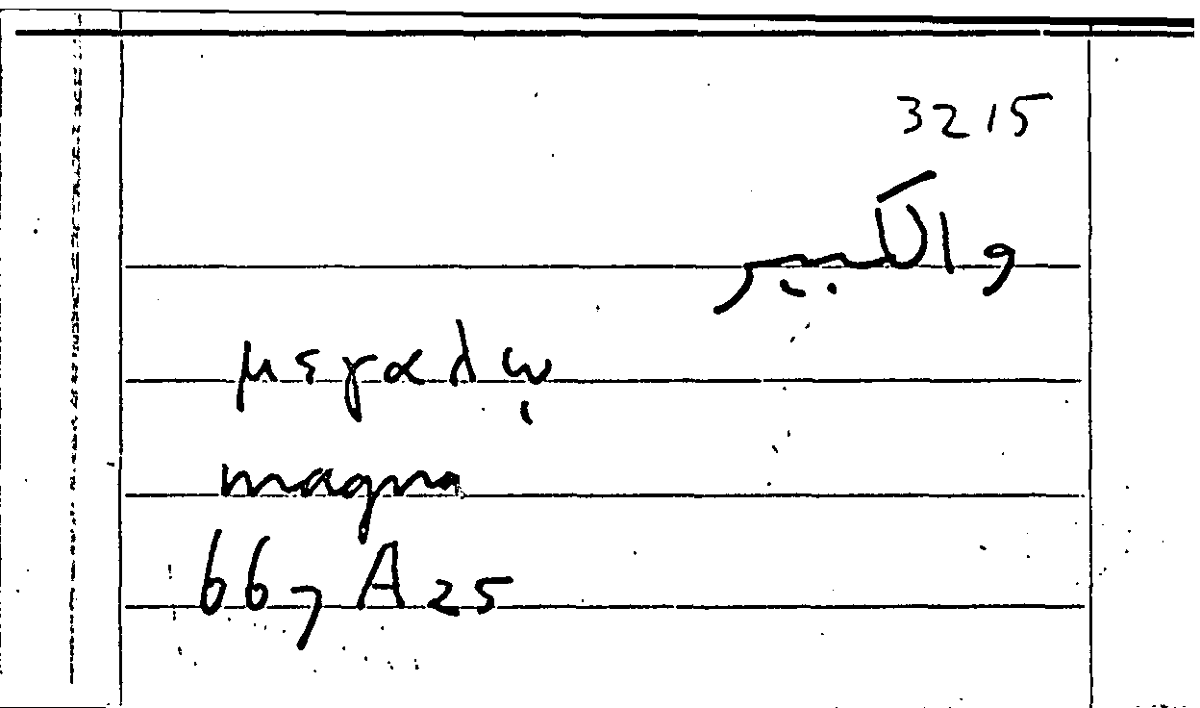 3215
والكبير
μεγαλῳ
magna
667 A 25